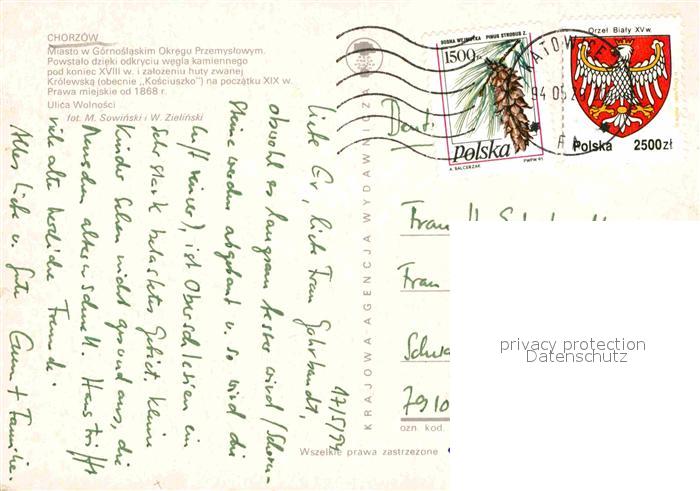 CHORZÓW
Miasto w Górnośląskim Okręgu Przemysłowym.
Powstało dzięki odkryciu węgla kamiennego
pod koniec XVIII w. i założeniu huty zwanej
Królewską (obecnie „Kościuszko") na początku XIX w.
Prawa miejskie od 1868 r.
Ulica Wolności
fot. M. Sowiński i W. Zieliński
17/5/94
Liebe Ev, liebe Frau
obwohl es langsam besser wird
Steine werden abgebaut u. so wird die
Luft reiner), ist Oberschlesien ein
sehr stark belastetes Gebiet. Kleine
Kinder sehen nicht gesund aus, die
Menschen altern schnell. Hans trifft
viele alte herzliche Freunde.
Alles Liebe u. Gute
+ Familie.
KRAJOWA AGENCJA WYDAWNICZA
Wszelkie prawa zastrzeżone
SOSNA WEJMUTKA PINUS STROBUS Z.
1500 zł
Polska
A. BALCERZAK
PWPW 93
Orzeł Biały XV w.
Polska 2500 zł
KATOWICE
94 05
Frau
Frau
Schw
7910
ozn. kod.
privacy protection
Datenschutz